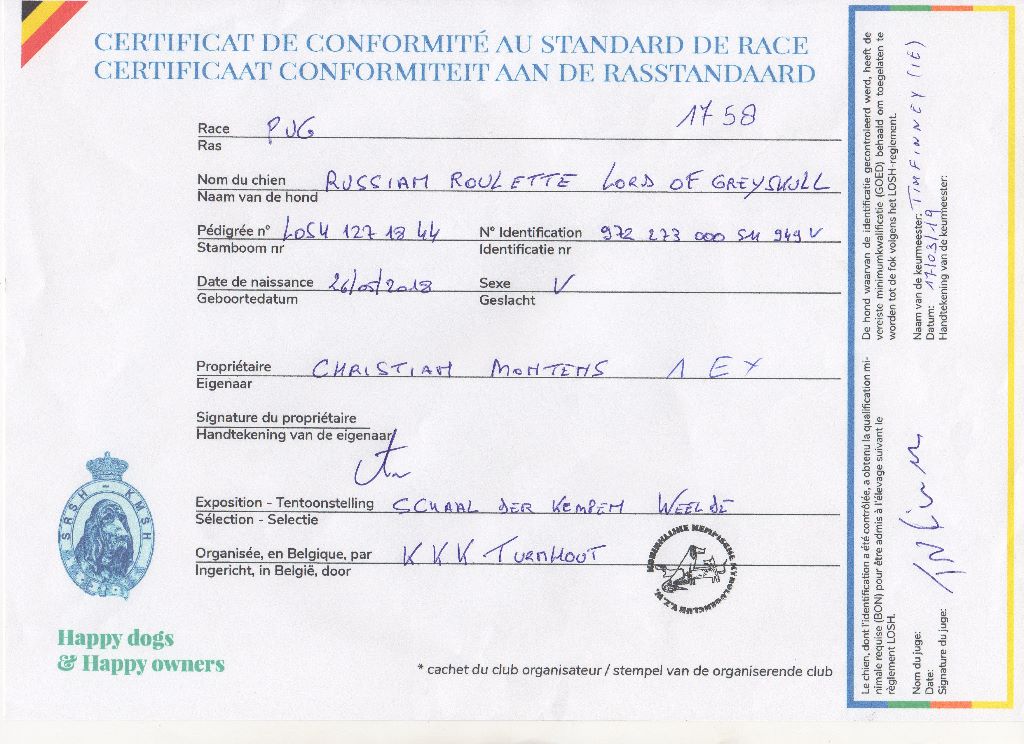 CERTIFICAT DE CONFORMITÉ AU STANDARD DE RACE
CERTIFICAAT CONFORMITEIT AAN DE RASSTANDAARD
1758
Race PUG
Ras
Nom du chien RUSSIAN ROULETTE LORD OF GREYSKULL
Naam van de hond
Pédigrée n° LOSH 127 18 44 N° Identification 972 273 000 511 949 V
Stamboom nr Identificatie nr
Date de naissance 26/05/2018 Sexe V
Geboortedatum Geslacht
Propriétaire CHRISTIAN MONTENS 1 EX
Eigenaar
Signature du propriétaire
Handtekening van de eigenaar
Exposition - Tentoonstelling SCHAAL DER KEMPEN WEELDE
Sélection - Selectie
Organisée, en Belgique, par KKK TURNHOUT
Ingericht, in België, door
KONINKLIJKE KEMPISCHE KYNOLOGENCLUB V.Z.W.
SRSH - KMSH
Happy dogs
& Happy owners
* cachet du club organisateur / stempel van de organiserende club
Le chien, dont l'identification a été contrôlée, a obtenu la qualification mi-
nimale requise (BON) pour être admis à l'élevage suivant le
règlement LOSH.
Nom du juge:
Date:
Signature du juge:
De hond waarvan de identificatie gecontroleerd werd, heeft de
vereiste minimumkwalificatie (GOED) behaald om toegelaten te
worden tot de fok volgens het LOSH-reglement.
Naam van de keurmeester: TIM FINNEY (IE)
Datum: 17/03/19
Handtekening van de keurmeester: